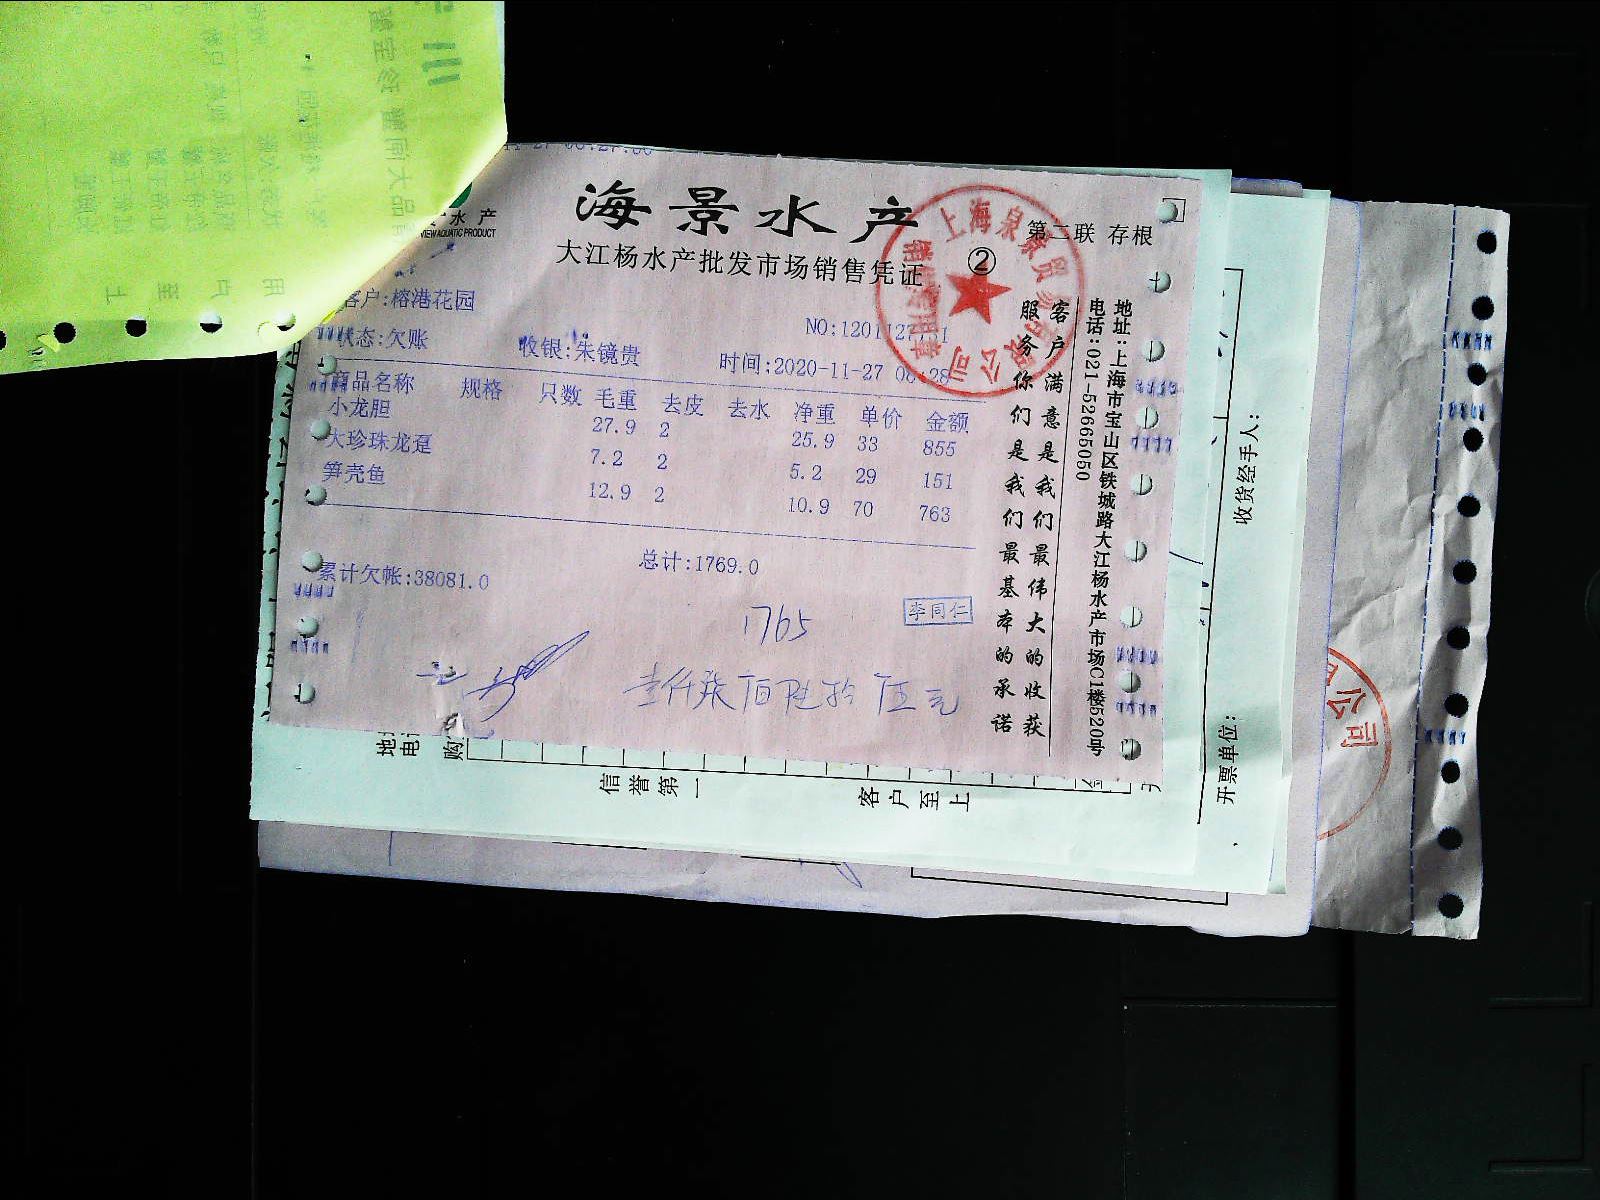 海景水产
水产
VIEW AQUATIC PRODUCT
大江杨水产批发市场销售凭证
②
第二联 存根
客户:榕港花园
状态:欠账
收银:朱镜贵
NO:1201127
时间:2020-11-27
商品名称 规格 只数 毛重 去皮 去水 净重 单价 金额
小龙胆 27.9 2 25.9 33 855
大珍珠龙趸 7.2 2 5.2 29 151
笋壳鱼 12.9 2 10.9 70 763
累计欠帐:38081.0
总计:1769.0
1765
李同仁
壹仟柒佰陆拾伍元
客户满意是我们最伟大的收获
服务你们是我们最基本的承诺
地址:上海市宝山区铁城路大江杨水产市场C1楼520号
电话:021-52665050
收货经手人:
开票单位:
信誉第一
客户至上
公司